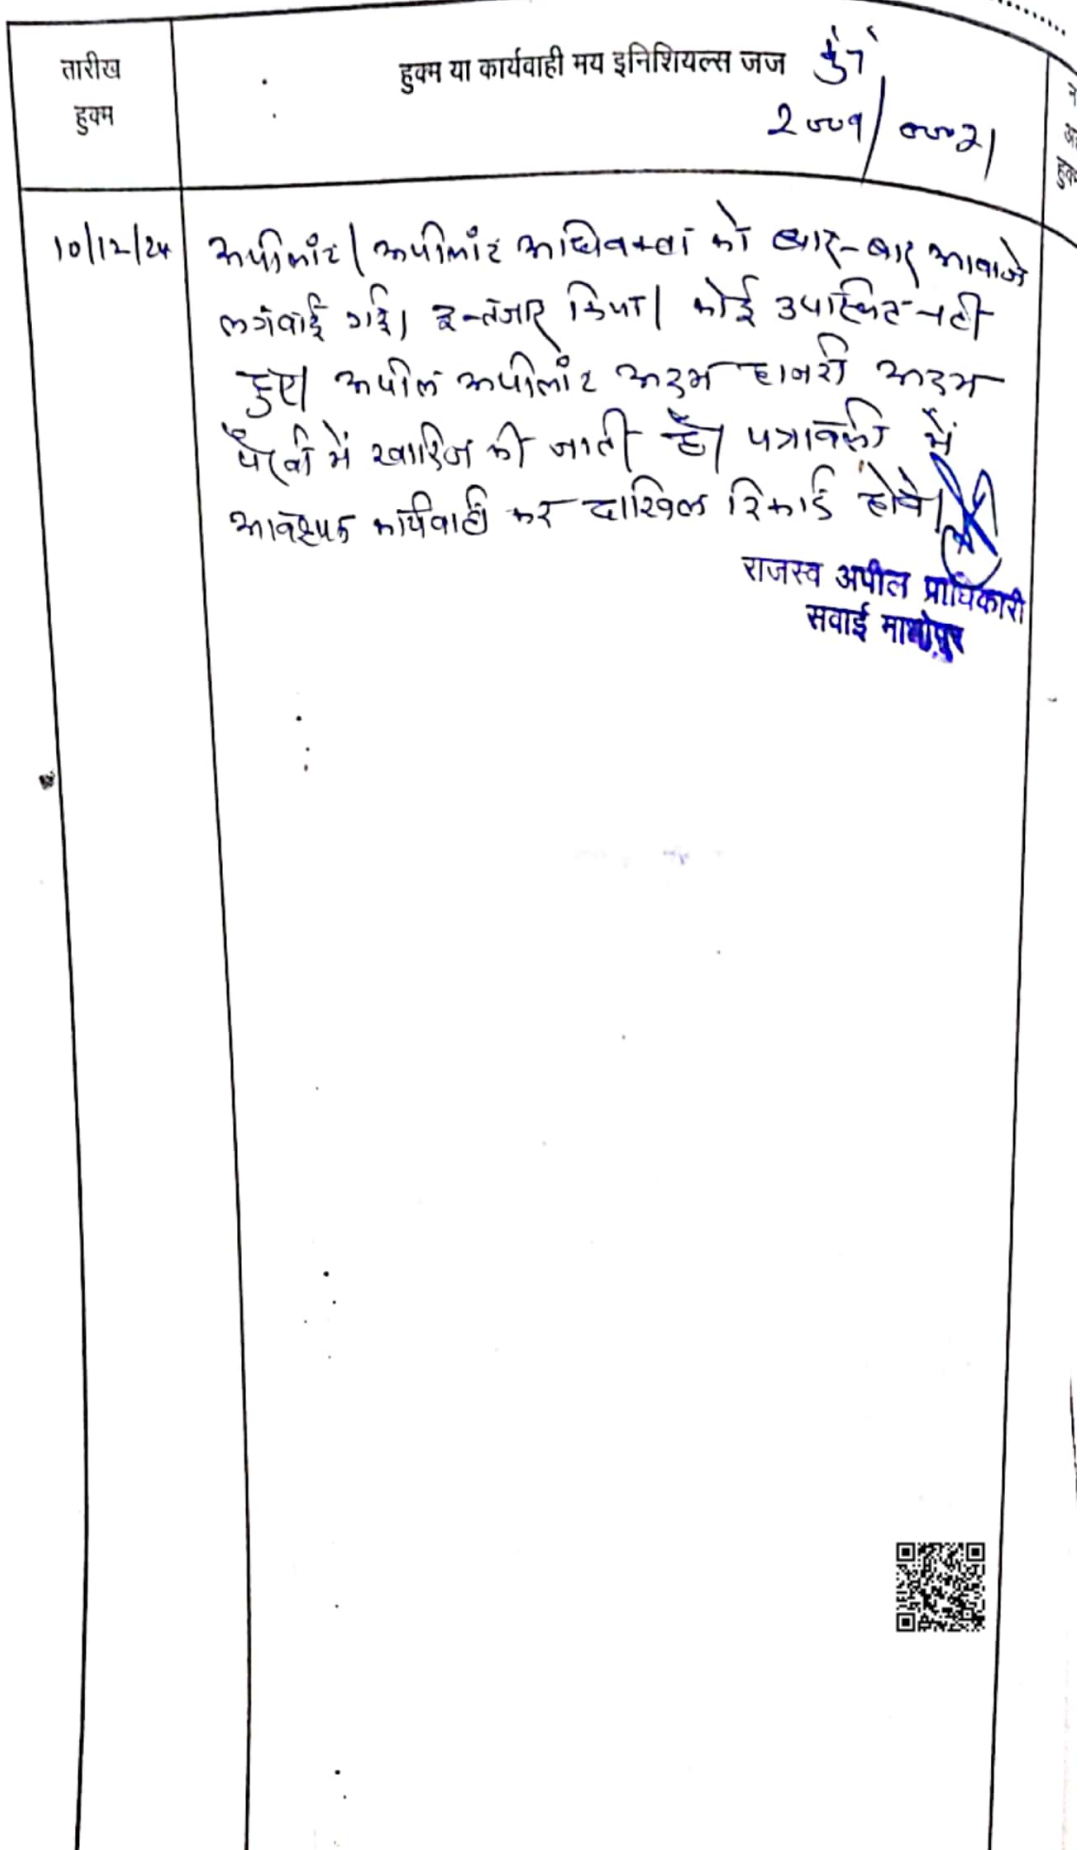 तारीख
हुक्म
हुक्म या कार्यवाही मय इनिशियल्स जज
10/12/24
अपीलांट/अपीलांट अधिवक्ता को बार-बार आवाजे
लगवाई गई। इन्तजार किया। कोई उपस्थित नही
हुए। अपील अपीलांट अदम हाजरी अदम
पैरवी में खारिज की जाती है। पत्रावली में
आवश्यक कार्यवाही कर दाखिल रिकार्ड होवे।
राजस्व अपील प्राधिकारी
सवाई माधोपुर